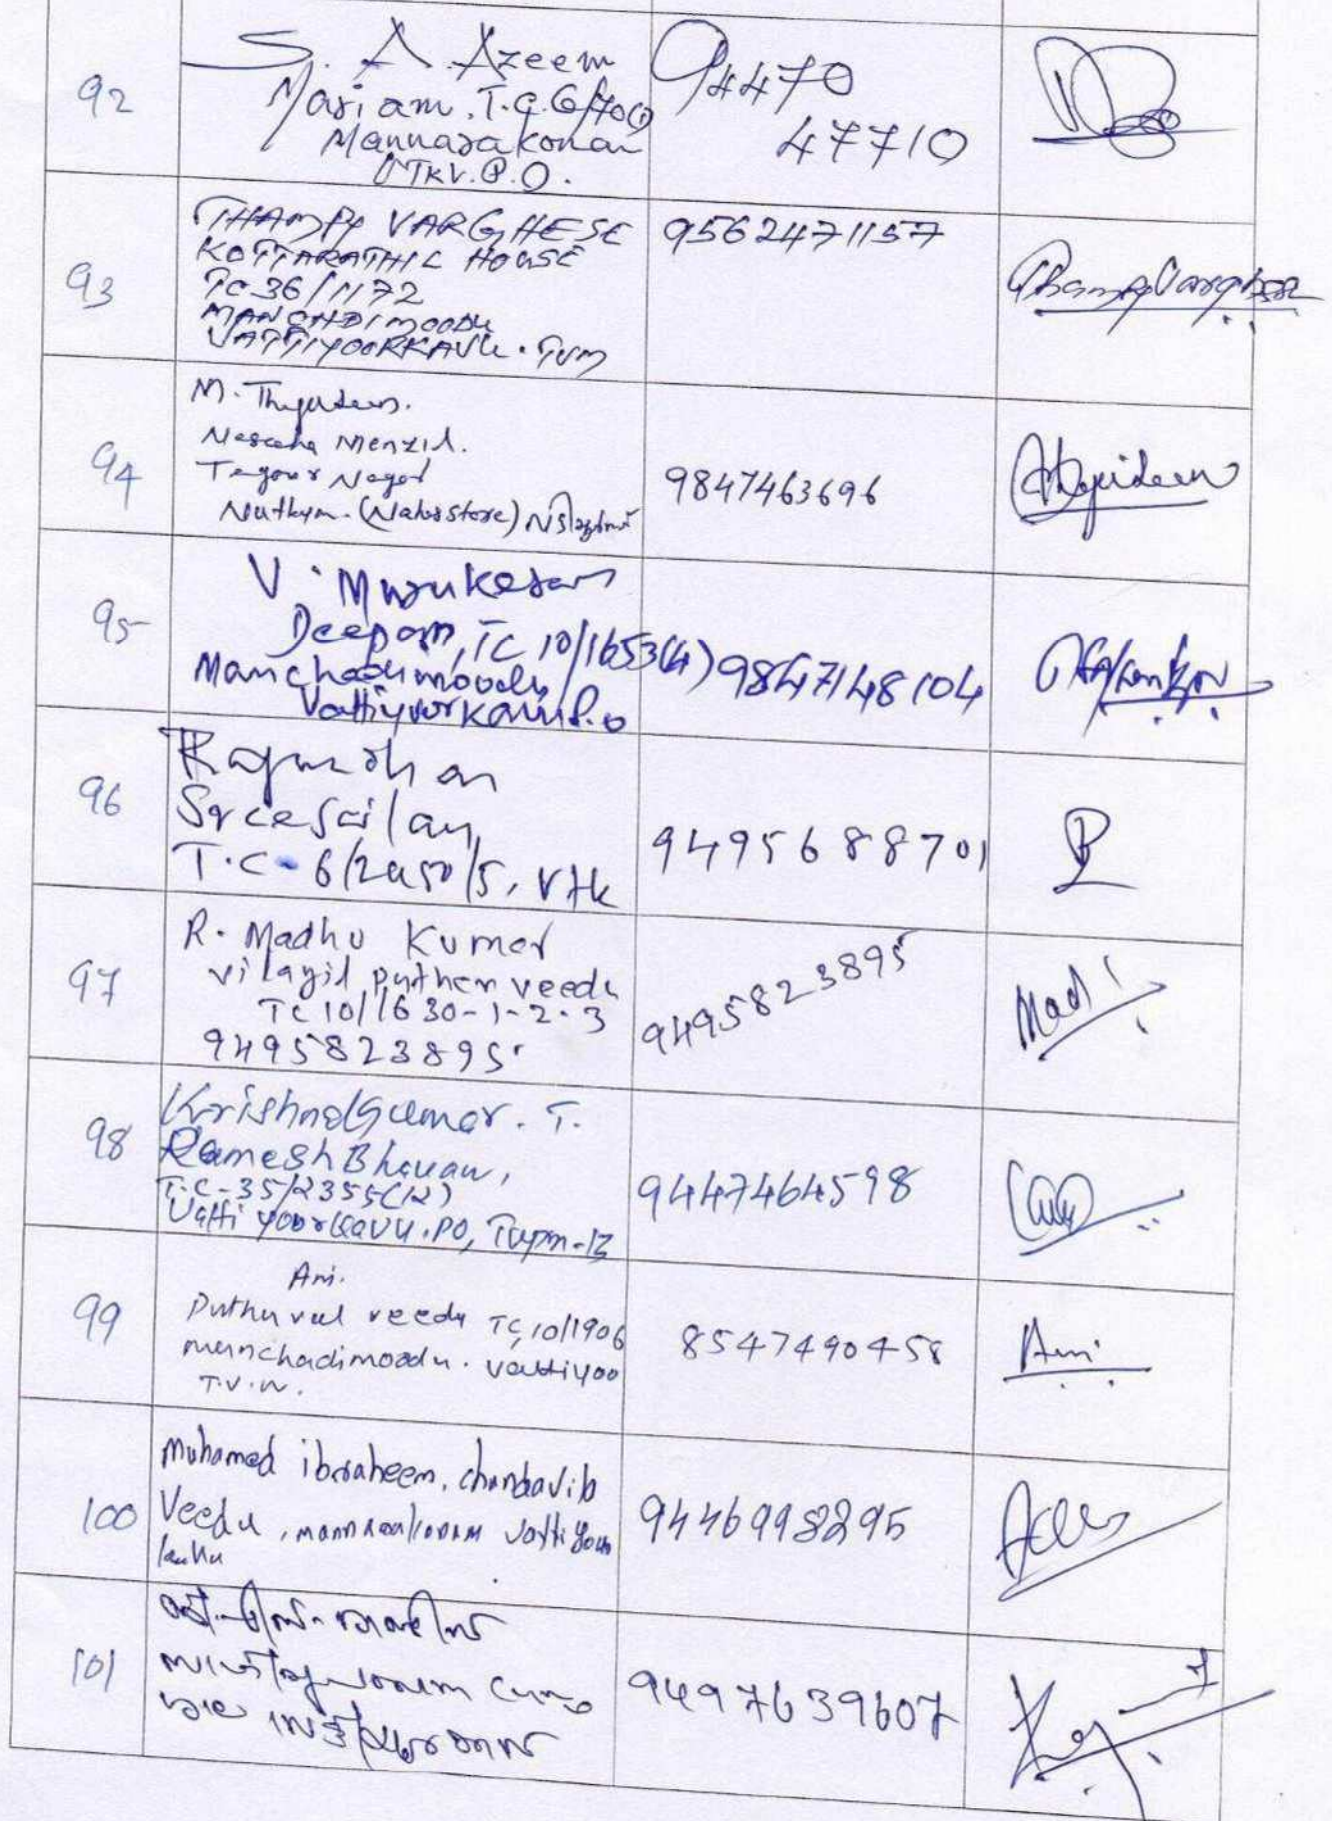 92
S. A. Azeem
Mariam. T.C. 6/
Mannarakonam
VTKV. P. O.
94470
47710
93
THAMPY VARGHESE
KOTTARATHIL HOUSE
TC 36/1172
MANCHDIMOODU
VATTIYOORKAVU. TVM
9562471157
Thampy Varghese
94
M. Thyudeen.
Menzil.
Tagour Nagar
(Naharstore)
9847463696
Thyudeen
95
V. Murukesan
Deepam, TC 10/1653(4)
Manchadimoodu
Vattiyoorkavu P.o
9847148104
96
Rajmohan
Sreesailam
T.C - 6/2050/5, Vtk
9495688701
97
R. Madhu Kumar
vilayil puthen veedu
TC 10/1630-1-2-3
9495823895
9495823895
Madhu
98
KrishnaKumar. T.
Ramesh Bhavan,
T.C-35/2355(12)
Vatti yoorkavu. PO, Tvpm-13
9447464598
99
Ani.
Puthuval veedu TC, 10/1906
manchadimoodu. vattiyoo
T.V.M.
8547490458
Ani
100
Muhamed ibraheem. chandavila
Veedu, vattiyoor
kavu
9446998295
101
9497639607